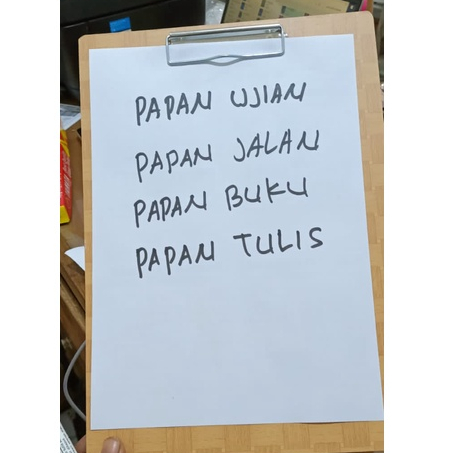 PAPAN UJIAN
PAPAN JALAN
PAPAN BUKU
PAPAN TULIS